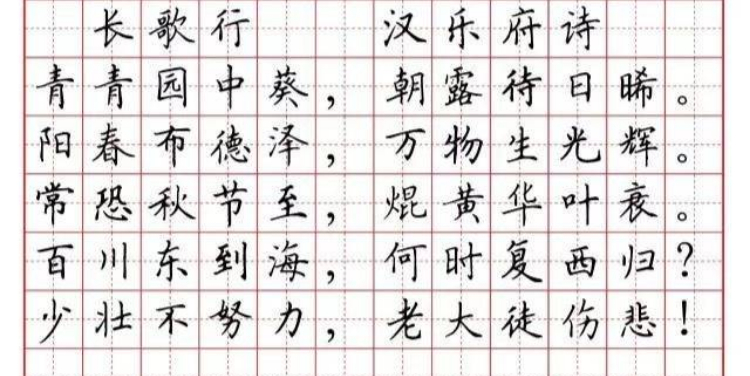 长歌行 汉乐府诗
青青园中葵，朝露待日晞。
阳春布德泽，万物生光辉。
常恐秋节至，焜黄华叶衰。
百川东到海，何时复西归？
少壮不努力，老大徒伤悲！